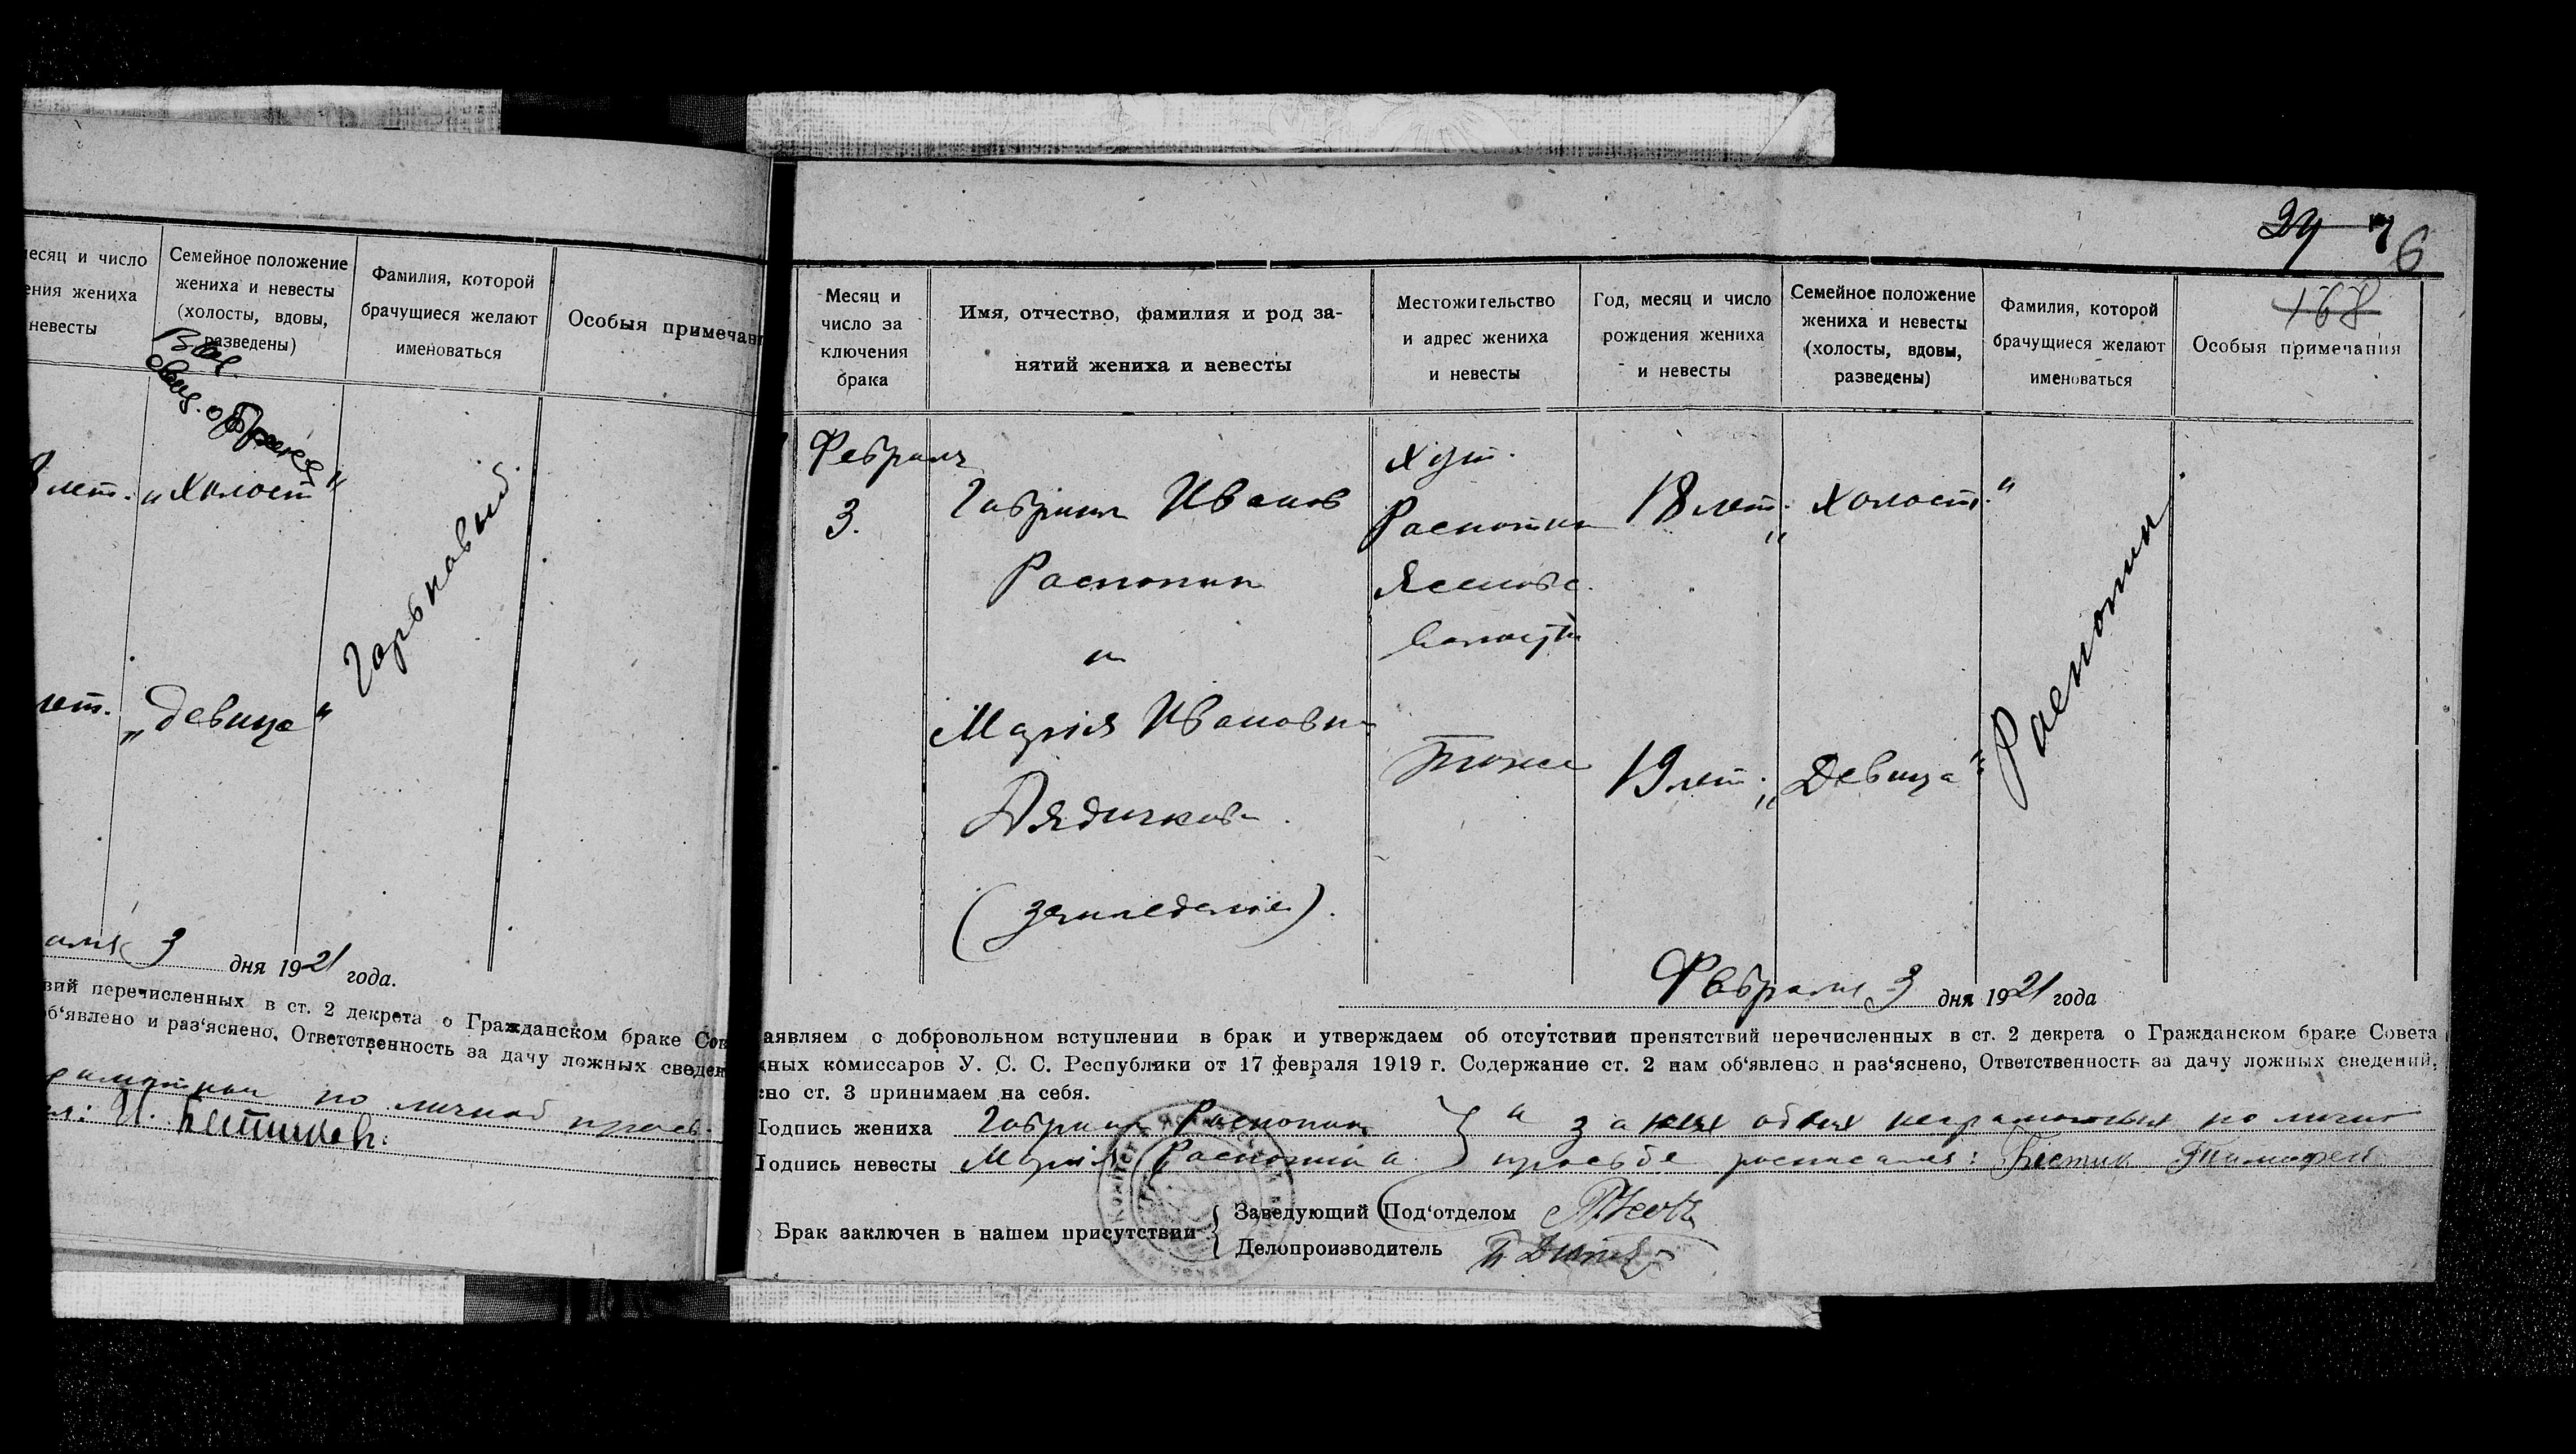 Семейное положение
жениха и невесты
(холосты, вдовы,
разведены)
Фамилия, которой
брачущиеся желают
именоваться
Особыя примечан
месяц и число
ения жениха
невесты
8 лет. „Холост“
Горбковый
лет. „девица“
3 дня 1921 года.
вий перечисленных в ст. 2 декрета о Гражданском браке Сов
об‘явлено и раз‘яснено, Ответственность за дачу ложных сведен
по личной
24 7 6
168
Месяц и
число за
ключения
брака
Имя, отчество, фамилия и род за-
нятий жениха и невесты
Местожительство
и адрес жениха
и невесты
Год, месяц и число
рождения жениха
и невесты
Семейное положение
жениха и невесты
(холосты, вдовы,
разведены)
Фамилия, которой
брачущиеся желают
именоваться
Особыя примечания
Февраля
3.
Гавриил Иванов
Распопин
и
Мария Ивановн
Дядичкова
(земледелие).
хут.
волости
тоже
18 лет. „холост.“
19 лет. „Девица“
Распопин
Февраля 3 дня 1921 года
аявляем о добровольном вступлении в брак и утверждаем об отсутствии препятствий перечисленных в ст. 2 декрета о Гражданском браке Совета
дных комиссаров У. С. С. Республики от 17 февраля 1919 г. Содержание ст. 2 нам об‘явлено и раз‘яснено, Ответственность за дачу ложных сведений,
сно ст. 3 принимаем на себя.
Подпись жениха Гавриил Распопин } а за них обоих неграмотных по личной
Подпись невесты Мария Распопина просьбе расписался: Тимофей
Брак заключен в нашем присутствии { Заведующий Под‘отделом
Делопроизводитель